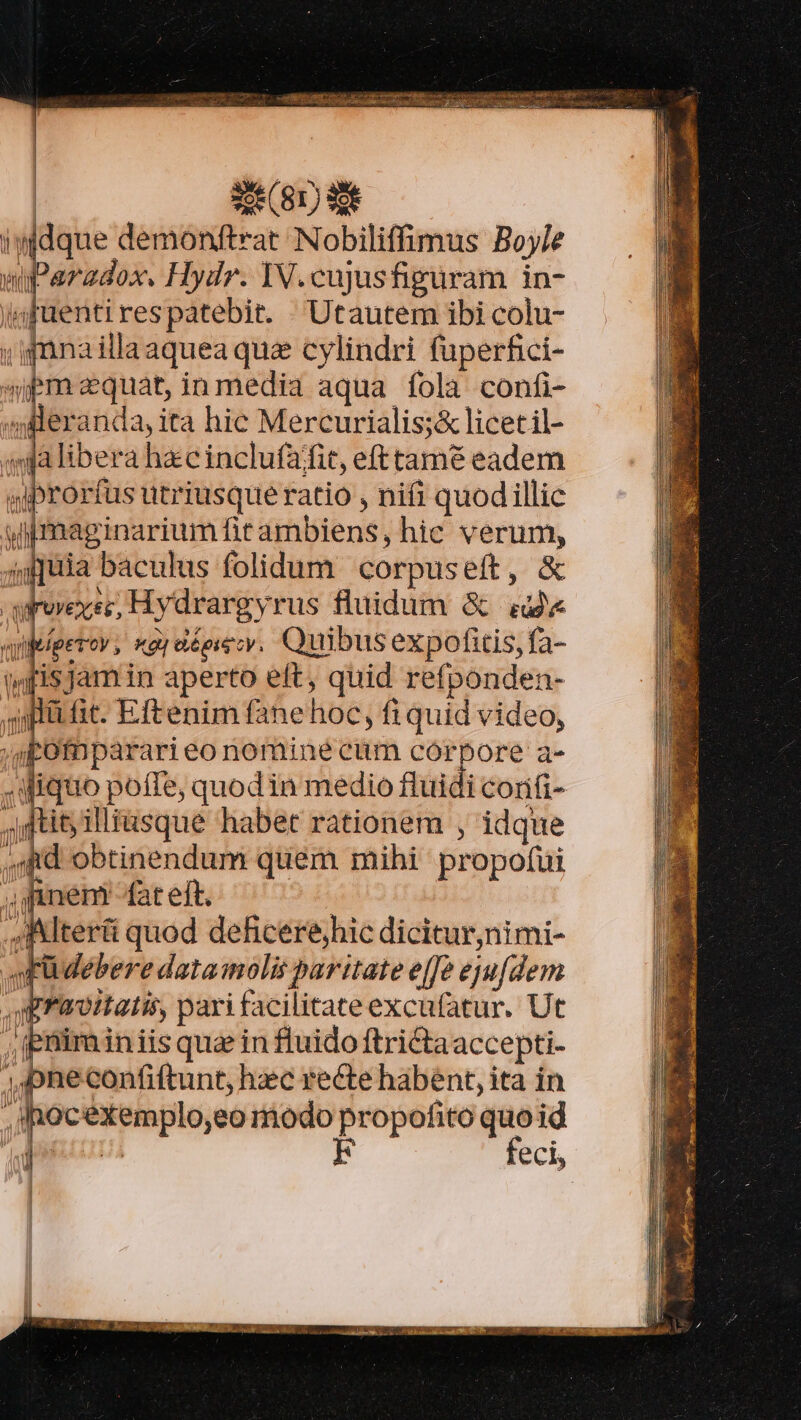 (81)
idque demonſtrat Nobiliſſimus Boyle
Paradox. Hydr. IV. cujus figuram in-
tuenti res patebit. Ut autem ibi colu-
mna illa aquea quæ cylindri ſuperfici-
em æquat, in media aqua ſola conſi-
deranda, ita hic Mercurialis; & licet il-
la libera hæc incluſa ſit, eſt tamẽ eadem
prorſus utriusque ratio, niſi quod illic
imaginarium ſit ambiens, hic verum,
quia baculus ſolidum corpus eſt, &
Hydrargyrus fluidum &
καὶ ἀόριςον. Quibus expoſitis, ſa-
tis jam in aperto eſt, quid reſponden-
dũ ſit. Eſt enim ſane hoc, ſi quid video,
comparari eo nomine cum corpore a-
liquo poſſe, quod in medio fluidi conſi-
ſtit, illiusque habet rationem, idque
ad obtinendum quem mihi propoſui
finem ſat eſt.
Alterũ quod deficere, hic dicitur, nimi-
rũ debere data molis paritate eſſe ejuſdem
gravitatis, pari facilitate excuſatur. Ut
enim in iis quæ in fluido ſtricta accepti-
one conſiſtunt, hæc recte habent, ita in
hoc exemplo, eo modo propoſito quo id
F feci,